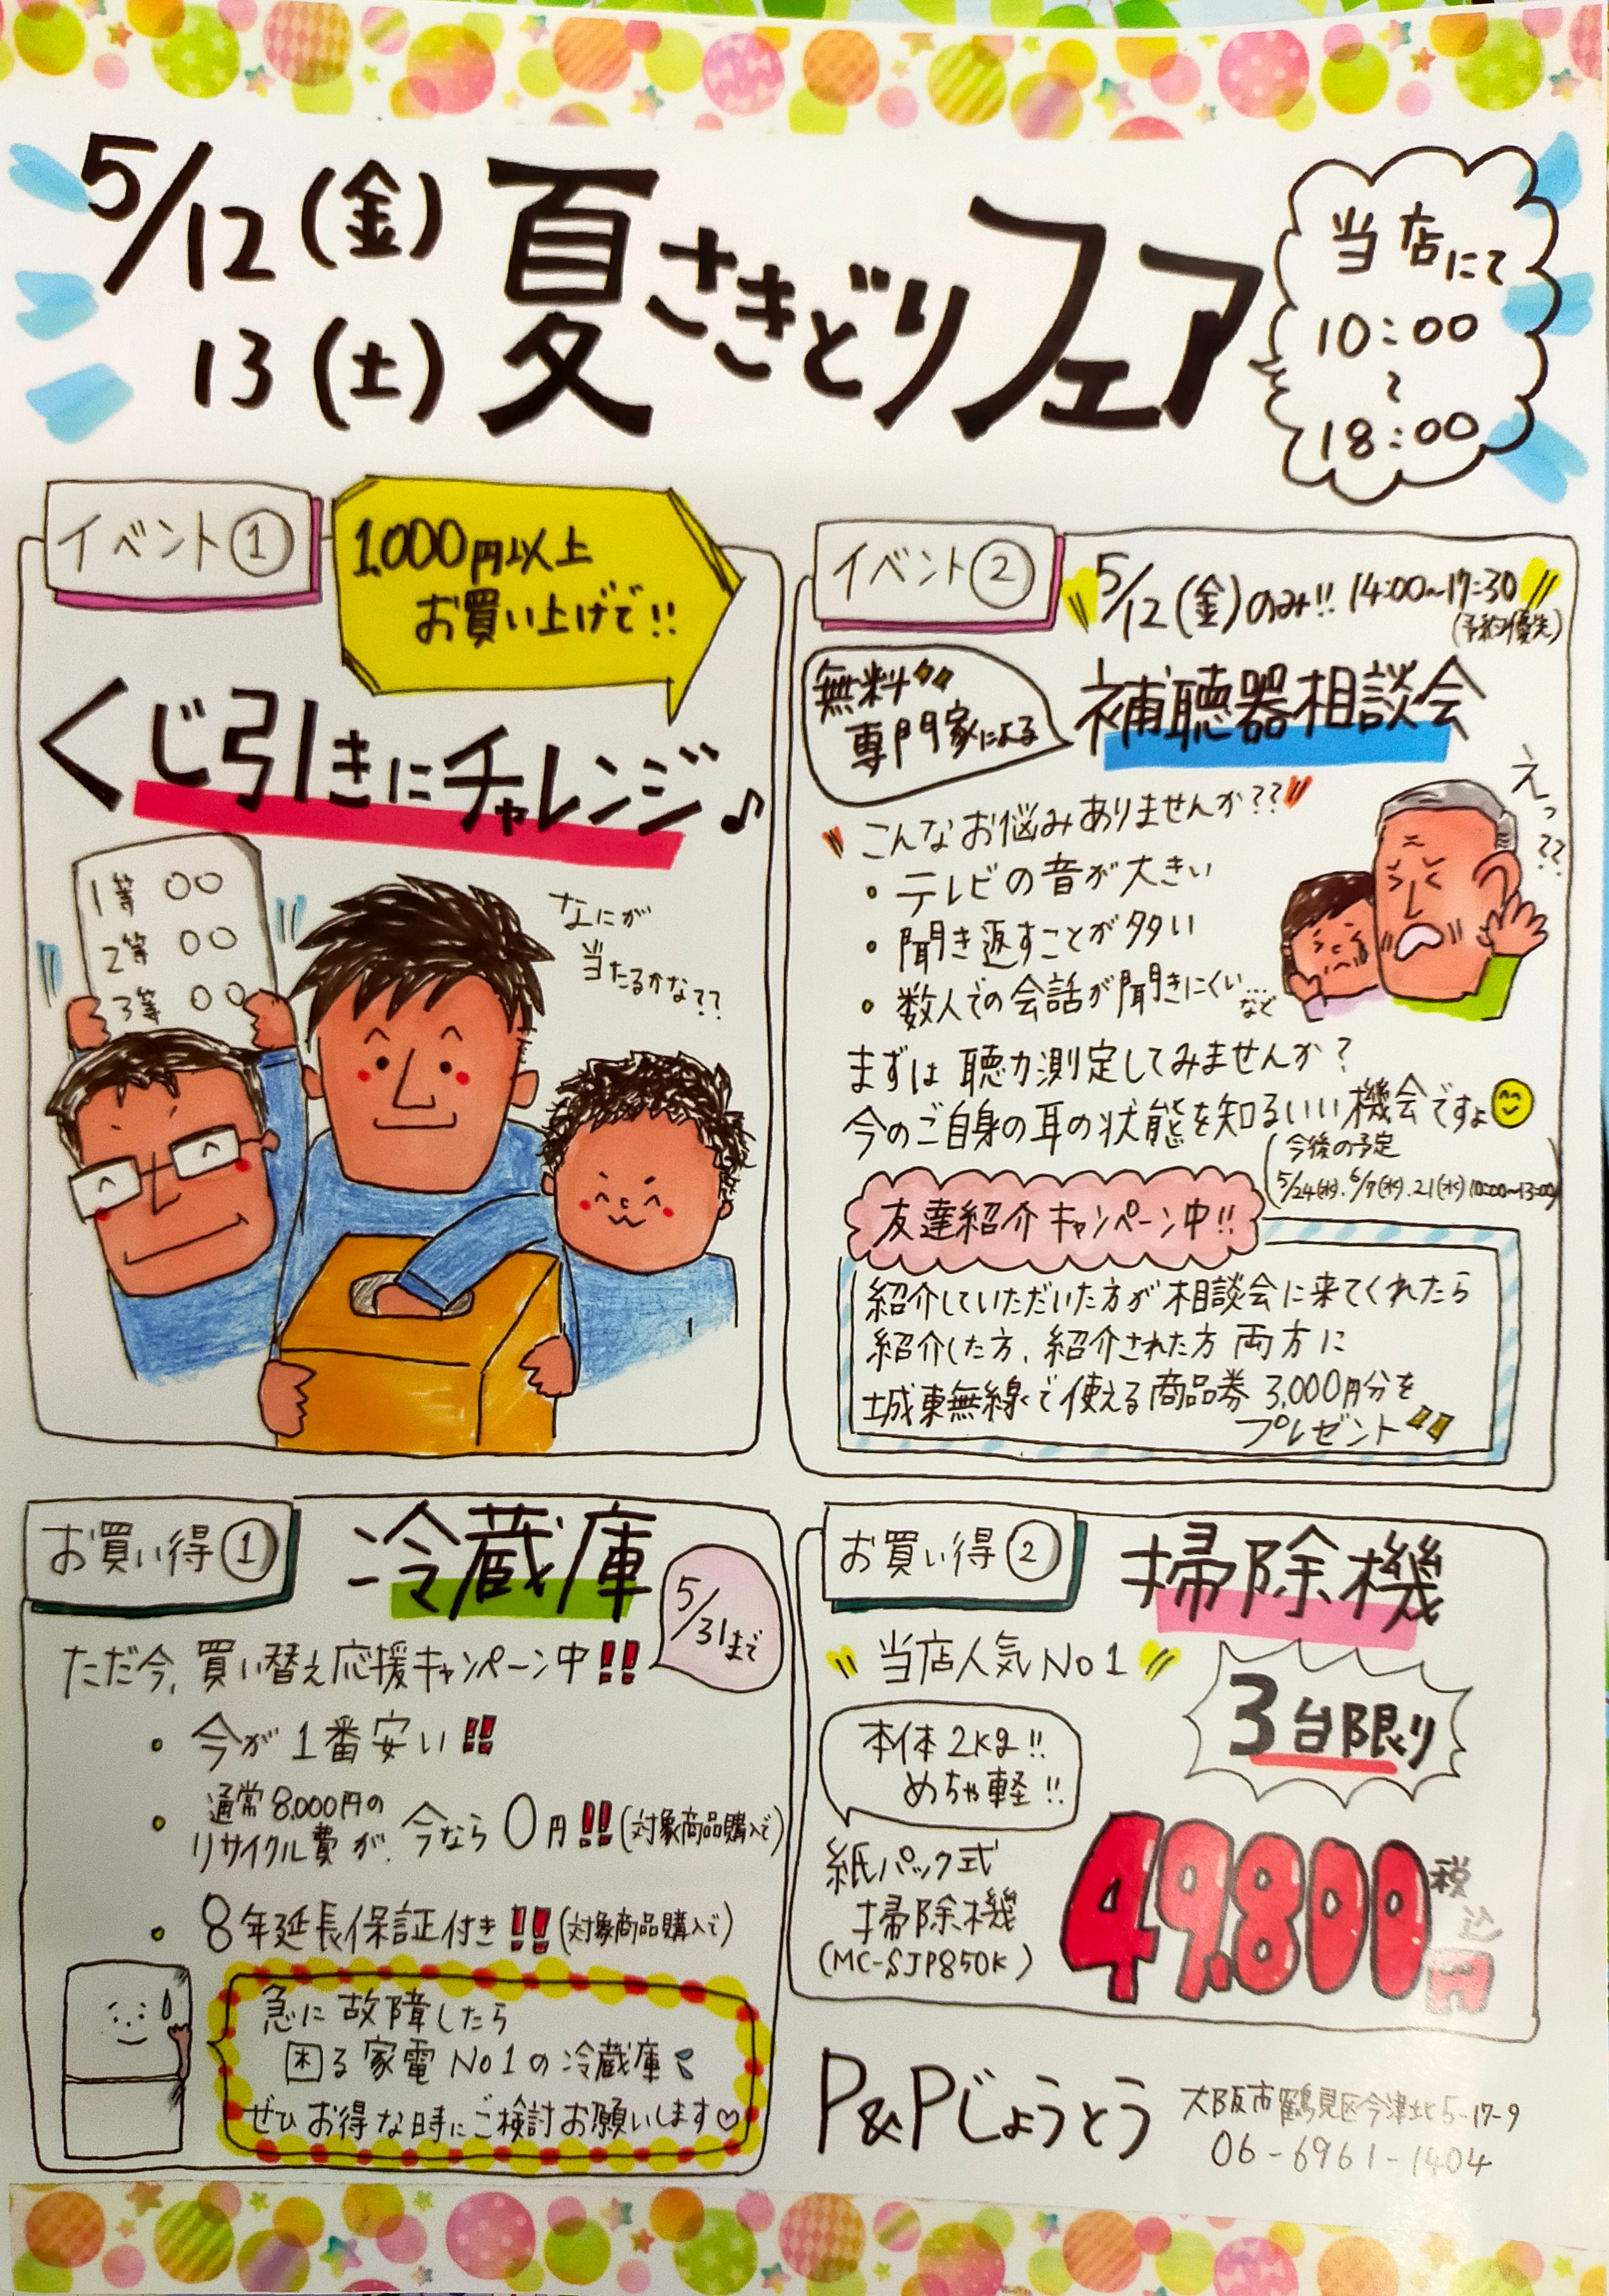 5/12(金)
13(土)
夏さきどりフェア
当店にて
10:00
〜
18:00
イベント①
1,000円以上
お買い上げで!!
くじ引きにチャレンジ♪
1等 〇〇
2等 〇〇
3等 〇〇
なにが
当たるかな??
イベント②
5/12(金)のみ!! 14:00〜17:30
(予約優先)
無料
専門家による
補聴器相談会
こんなお悩みありませんか??
・テレビの音が大きい
・聞き返すことが多い
・数人での会話が聞きにくい…など
えっ??
まずは 聴力測定してみませんか?
今のご自身の耳の状態を知るいい機会ですよ
今後の予定
5/24(水).6/7(水).21(水)10:00〜13:00
友達紹介キャンペーン中!!
紹介していただいた方が相談会に来てくれたら
紹介した方、紹介された方 両方に
城東無線で使える商品券 3,000円分を
プレゼント
お買い得①
冷蔵庫
5/31まで
ただ今、買い替え応援キャンペーン中!!
・今が1番安い!!
・通常8,000円の
リサイクル費が、今なら0円!!(対象商品購入で)
・8年延長保証付き!!(対象商品購入で)
急に故障したら
困る家電No1の冷蔵庫
ぜひお得な時にご検討お願いします♡
お買い得②
掃除機
当店人気No1
3台限り
本体2kg!!
めちゃ軽!!
紙パック式
掃除機
(MC-SJP850K)
49,800円
税込
P&Pじょうとう
大阪市鶴見区今津北5-17-9
06-6961-1404